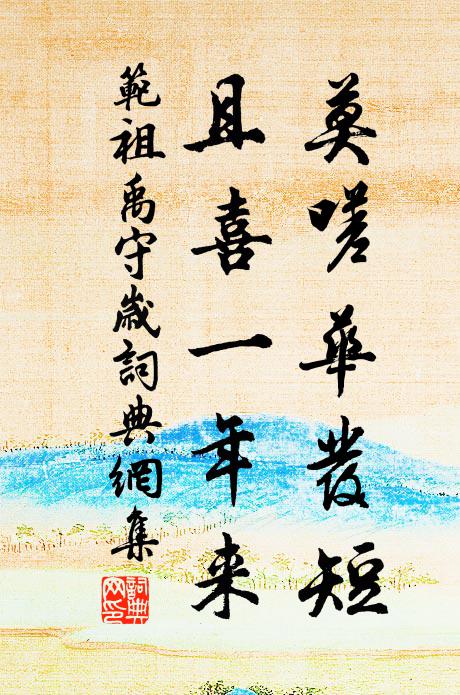 莫嗟華發短
且喜一年来
範祖禹守歲詞典網集
詞典